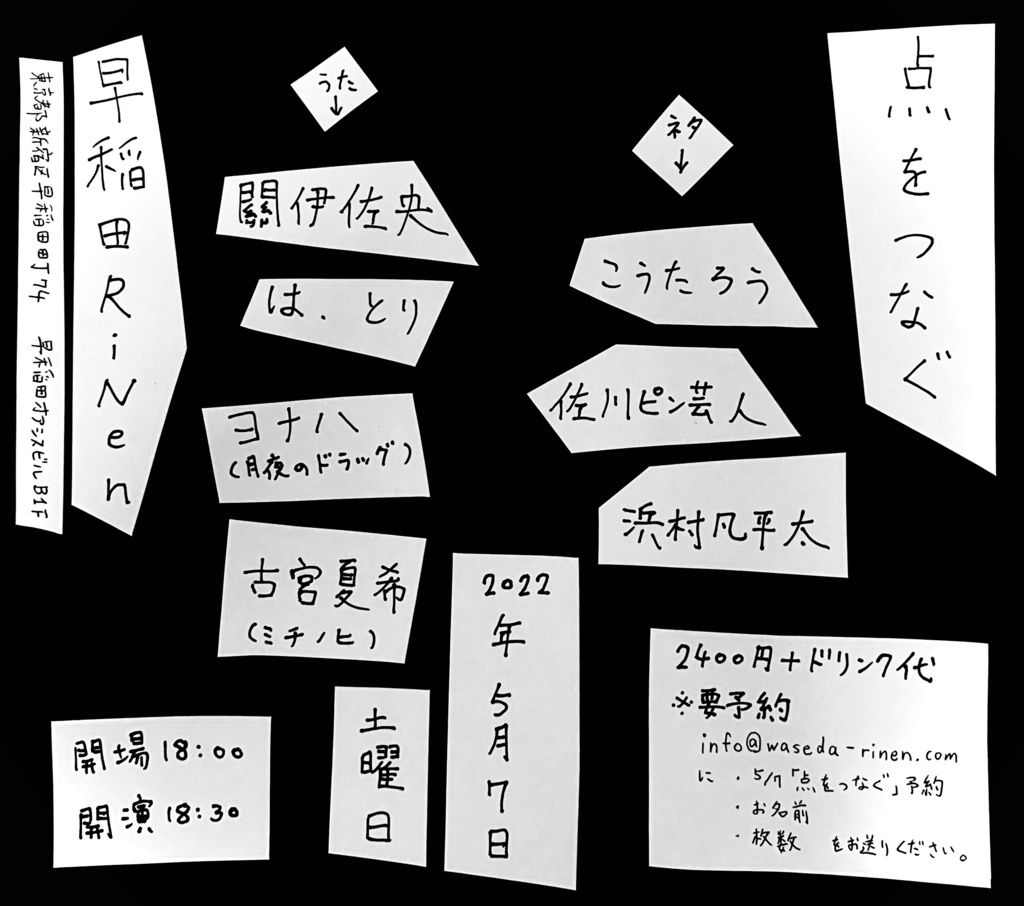 点をつなぐ
ネタ
↓
こうたろう
佐川ピン芸人
浜村凡平太
うた
↓
關伊佐央
は、とり
ヨナハ
(月夜のドラッグ)
古宮夏希
(ミチノヒ)
早稲田RiNen
東京都新宿区早稲田町74 早稲田オアシスビルB1F
2022年5月7日
土曜日
開場18:00
開演18:30
2400円+ドリンク代
※要予約
info@waseda-rinen.com
に ・5/7「点をつなぐ」予約
・お名前
・枚数 をお送りください。